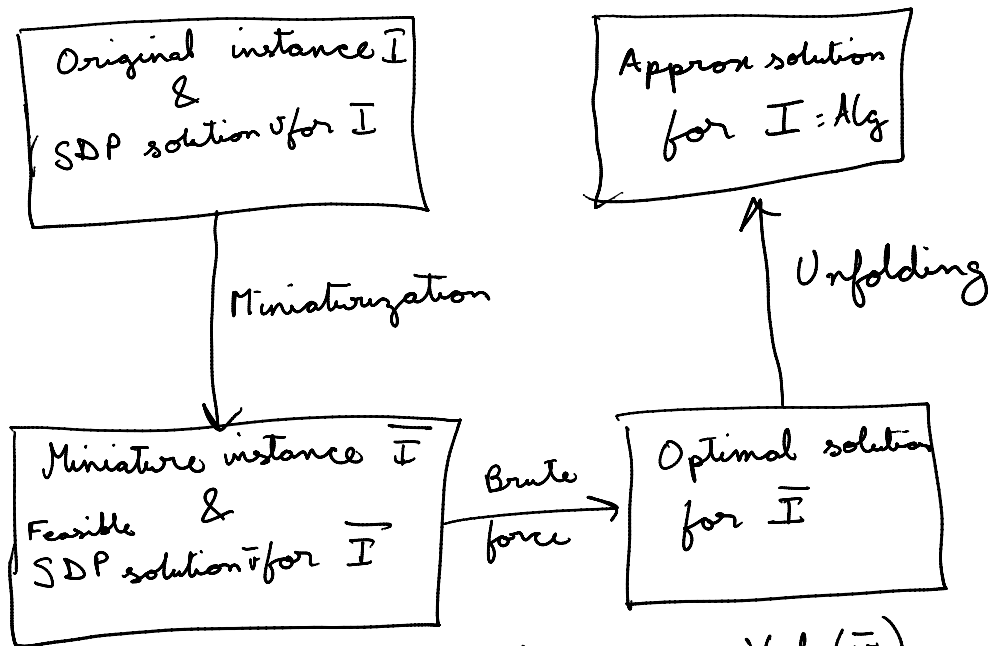 Original instance I
&
SDP solution v for I
Approx solution
for I : Alg
Miniaturization
Unfolding
Miniature instance Ī
&
Feasible
SDP solution v̄ for Ī
Brute
force
Optimal solution
for Ī